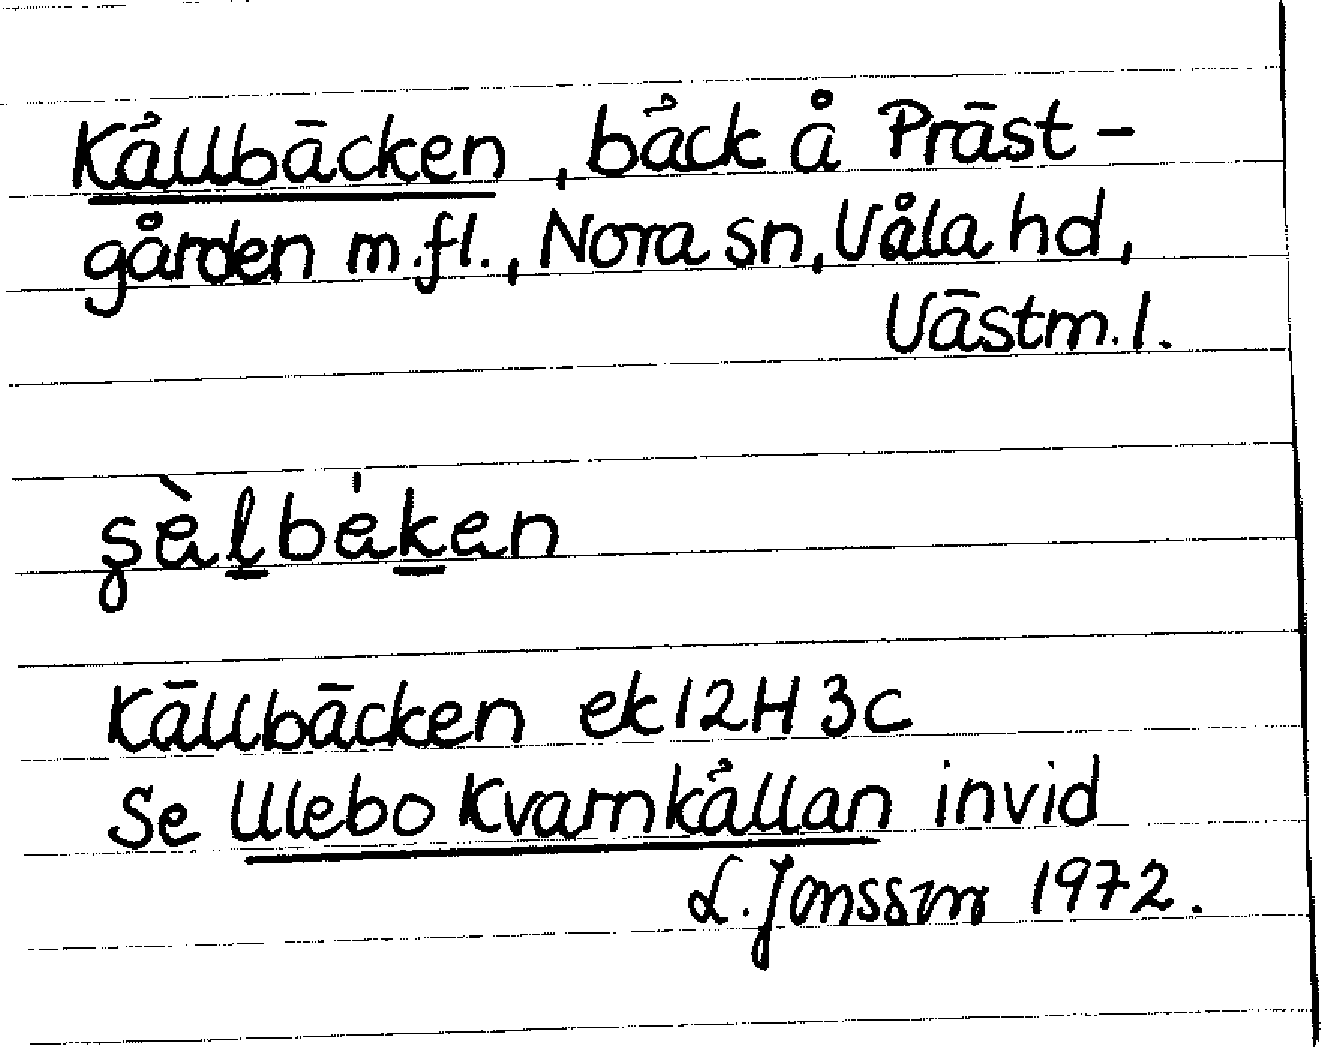 Källbäcken, bäck å Präst-
gården m.fl., Nora sn, Våla hd,
Västm.l.
şὲl̲bɛ́k̲en
Källbäcken ek 12H 3c
Se Ulebo Kvarnkällan invid
L. Jonsson 1972.